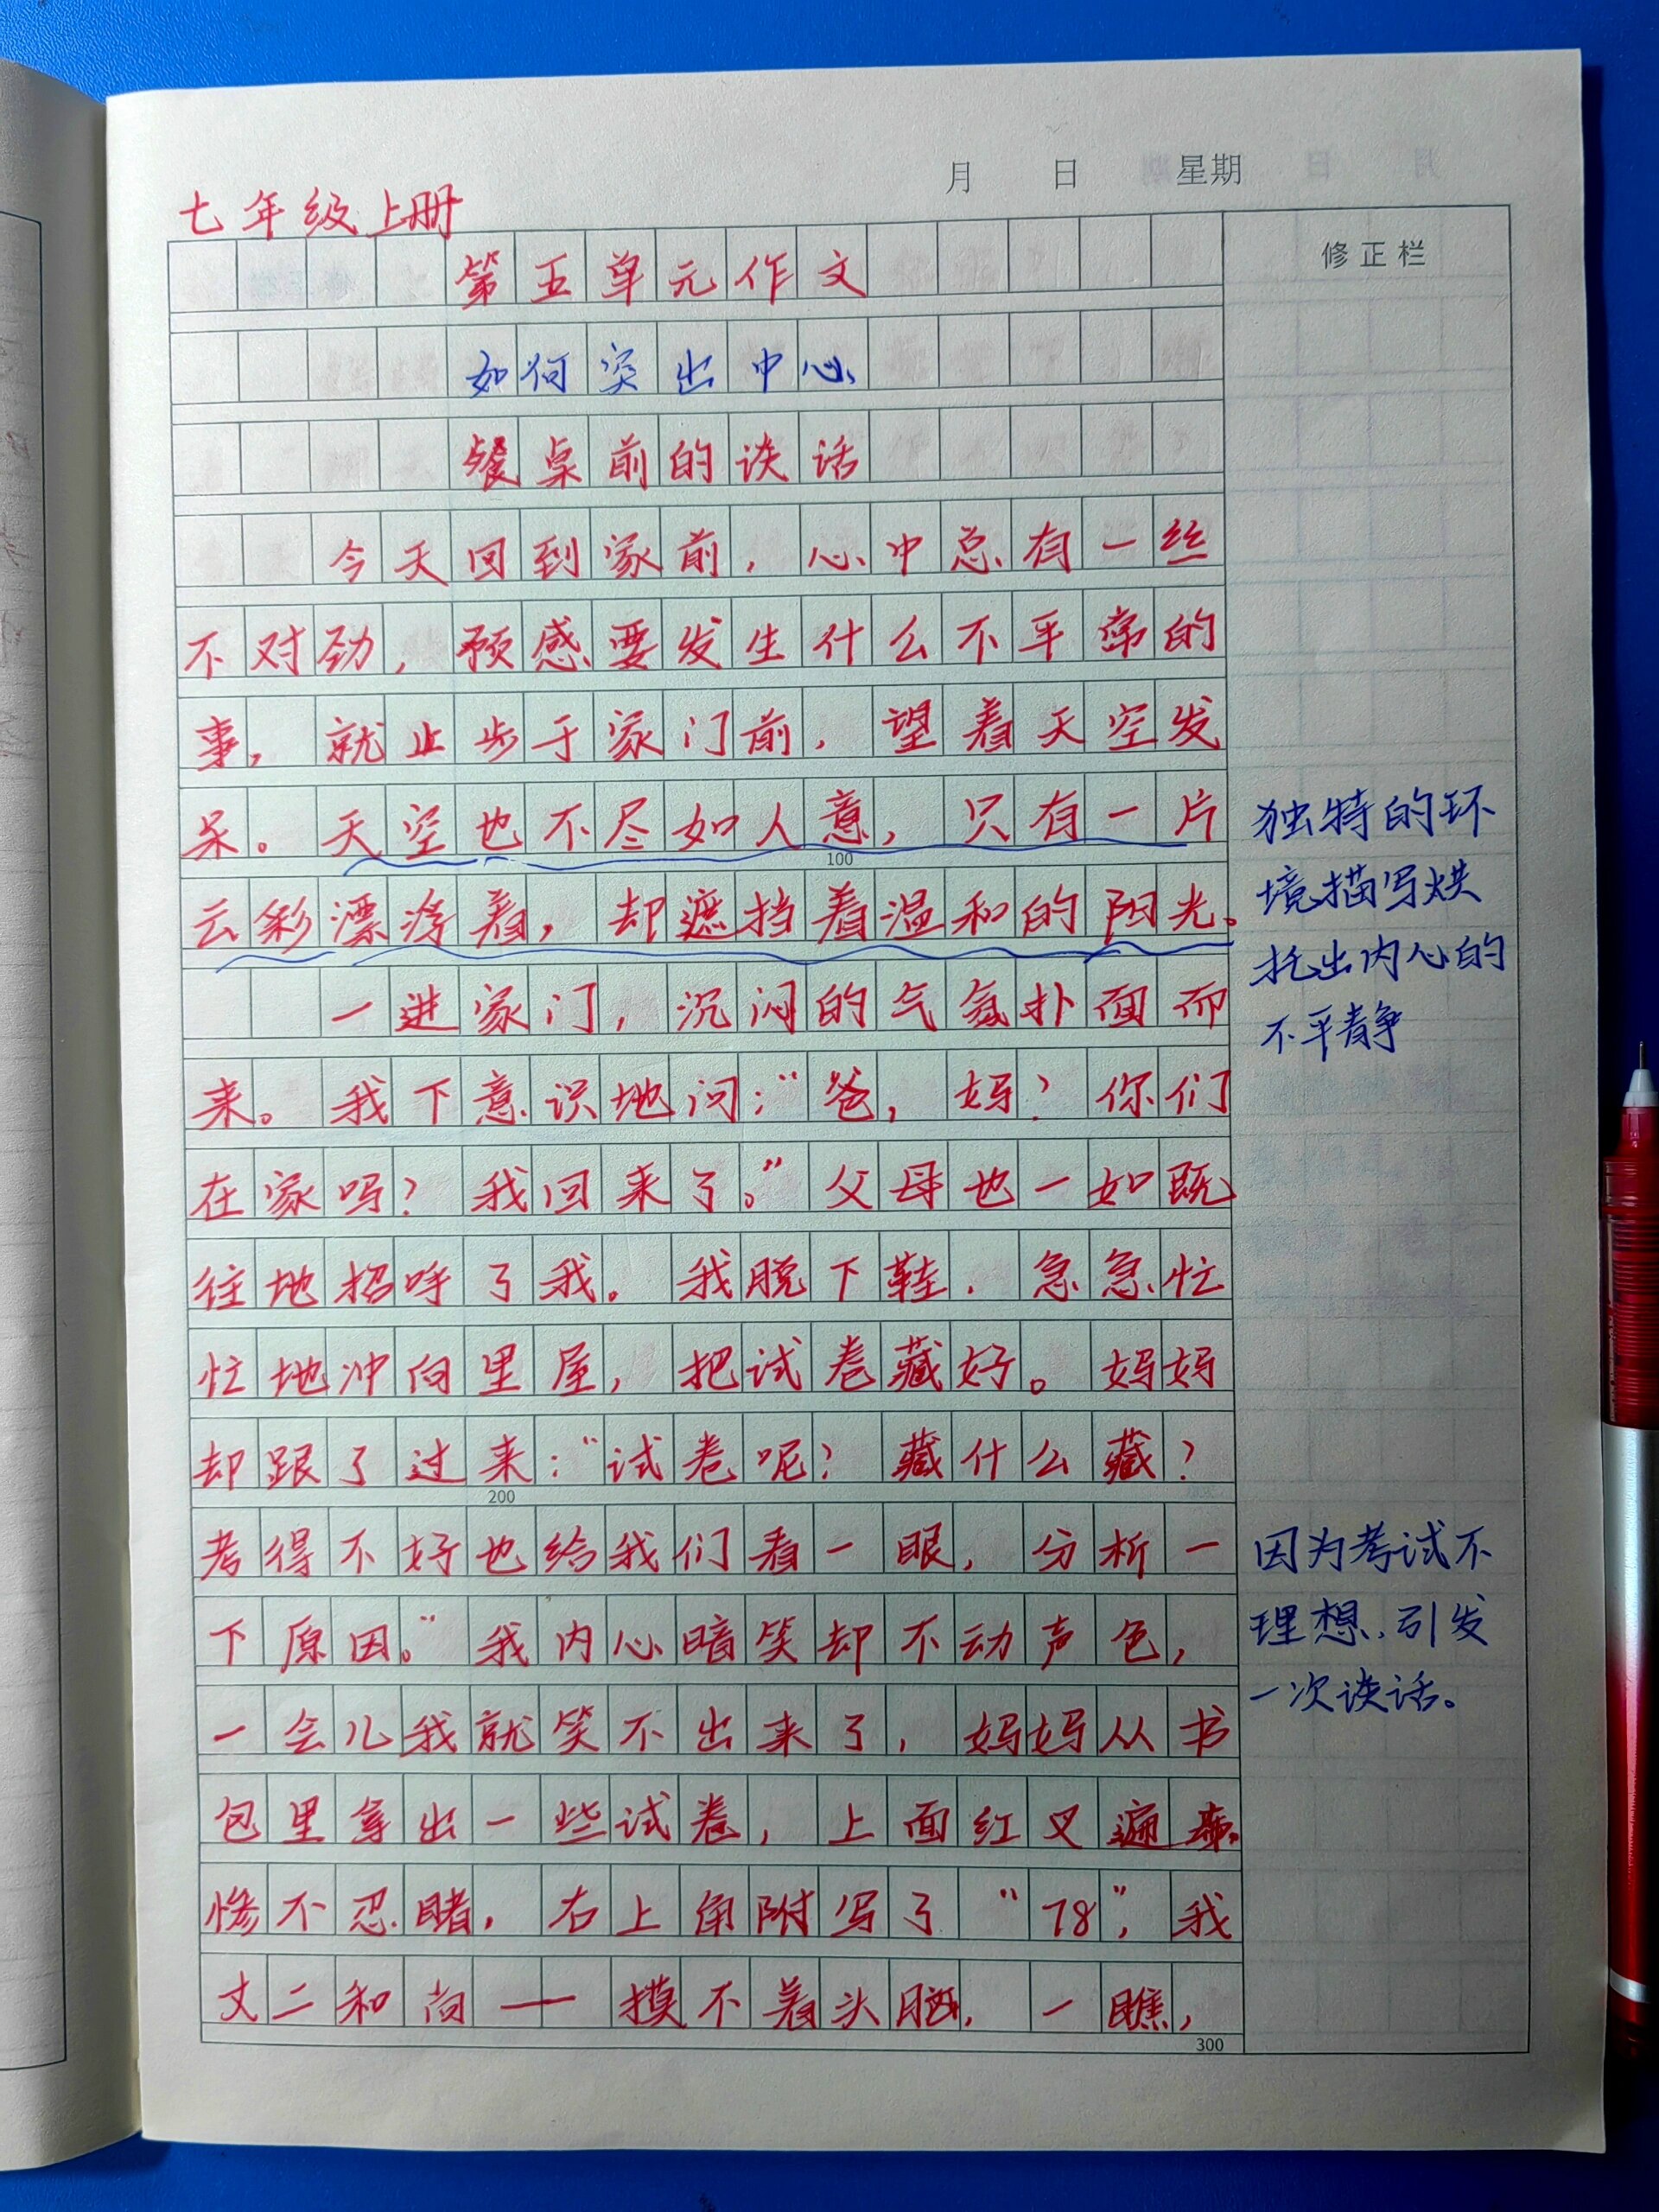 月 日 星期
七年级上册
修正栏
第五单元作文
如何突出中心
餐桌前的谈话
今天回到家前，心中总有一丝
不对劲，预感要发生什么不平常的
事，就止步于家门前，望着天空发
呆。天空也不尽如人意，只有一片
100
云彩漂浮着，却遮挡着温和的阳光。
独特的环
境描写烘
托出内心的
不平静
一进家门，沉闷的气氛扑面而
来。我下意识地问：“爸，妈？你们
在家吗？我回来了。”父母也一如既
往地招呼了我。我脱下鞋，急急忙
忙地冲向里屋，把试卷藏好。妈妈
却跟了过来：“试卷呢？藏什么藏？
200
考得不好也给我们看一眼，分析一
下原因。”我内心暗笑却不动声色，
一会儿我就笑不出来了，妈妈从书
因为考试不
理想，引发
一次谈话。
包里拿出一些试卷，上面红叉遍布。
惨不忍睹，右上角附写了“78”，我
丈二和尚——摸不着头脑，一瞧，
300